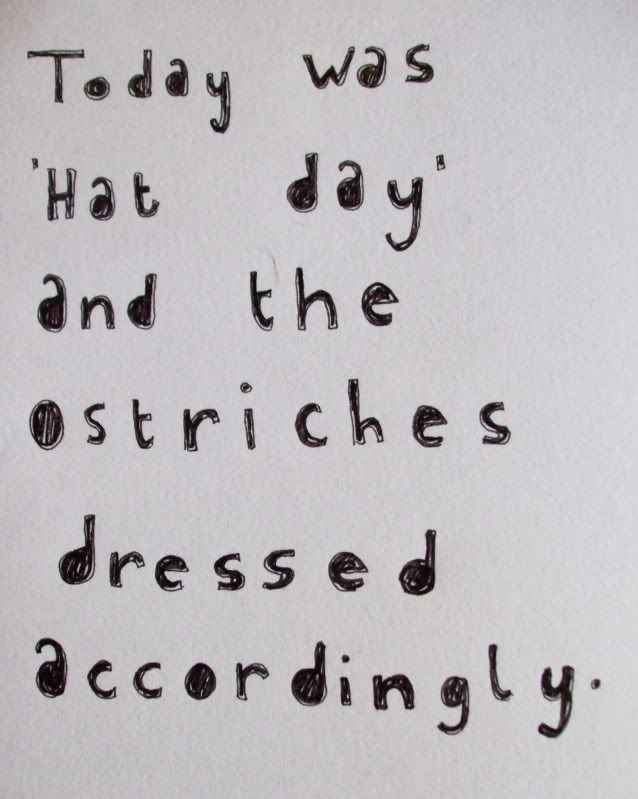 Today was
'Hat day'
and the
ostriches
dressed
accordingly.